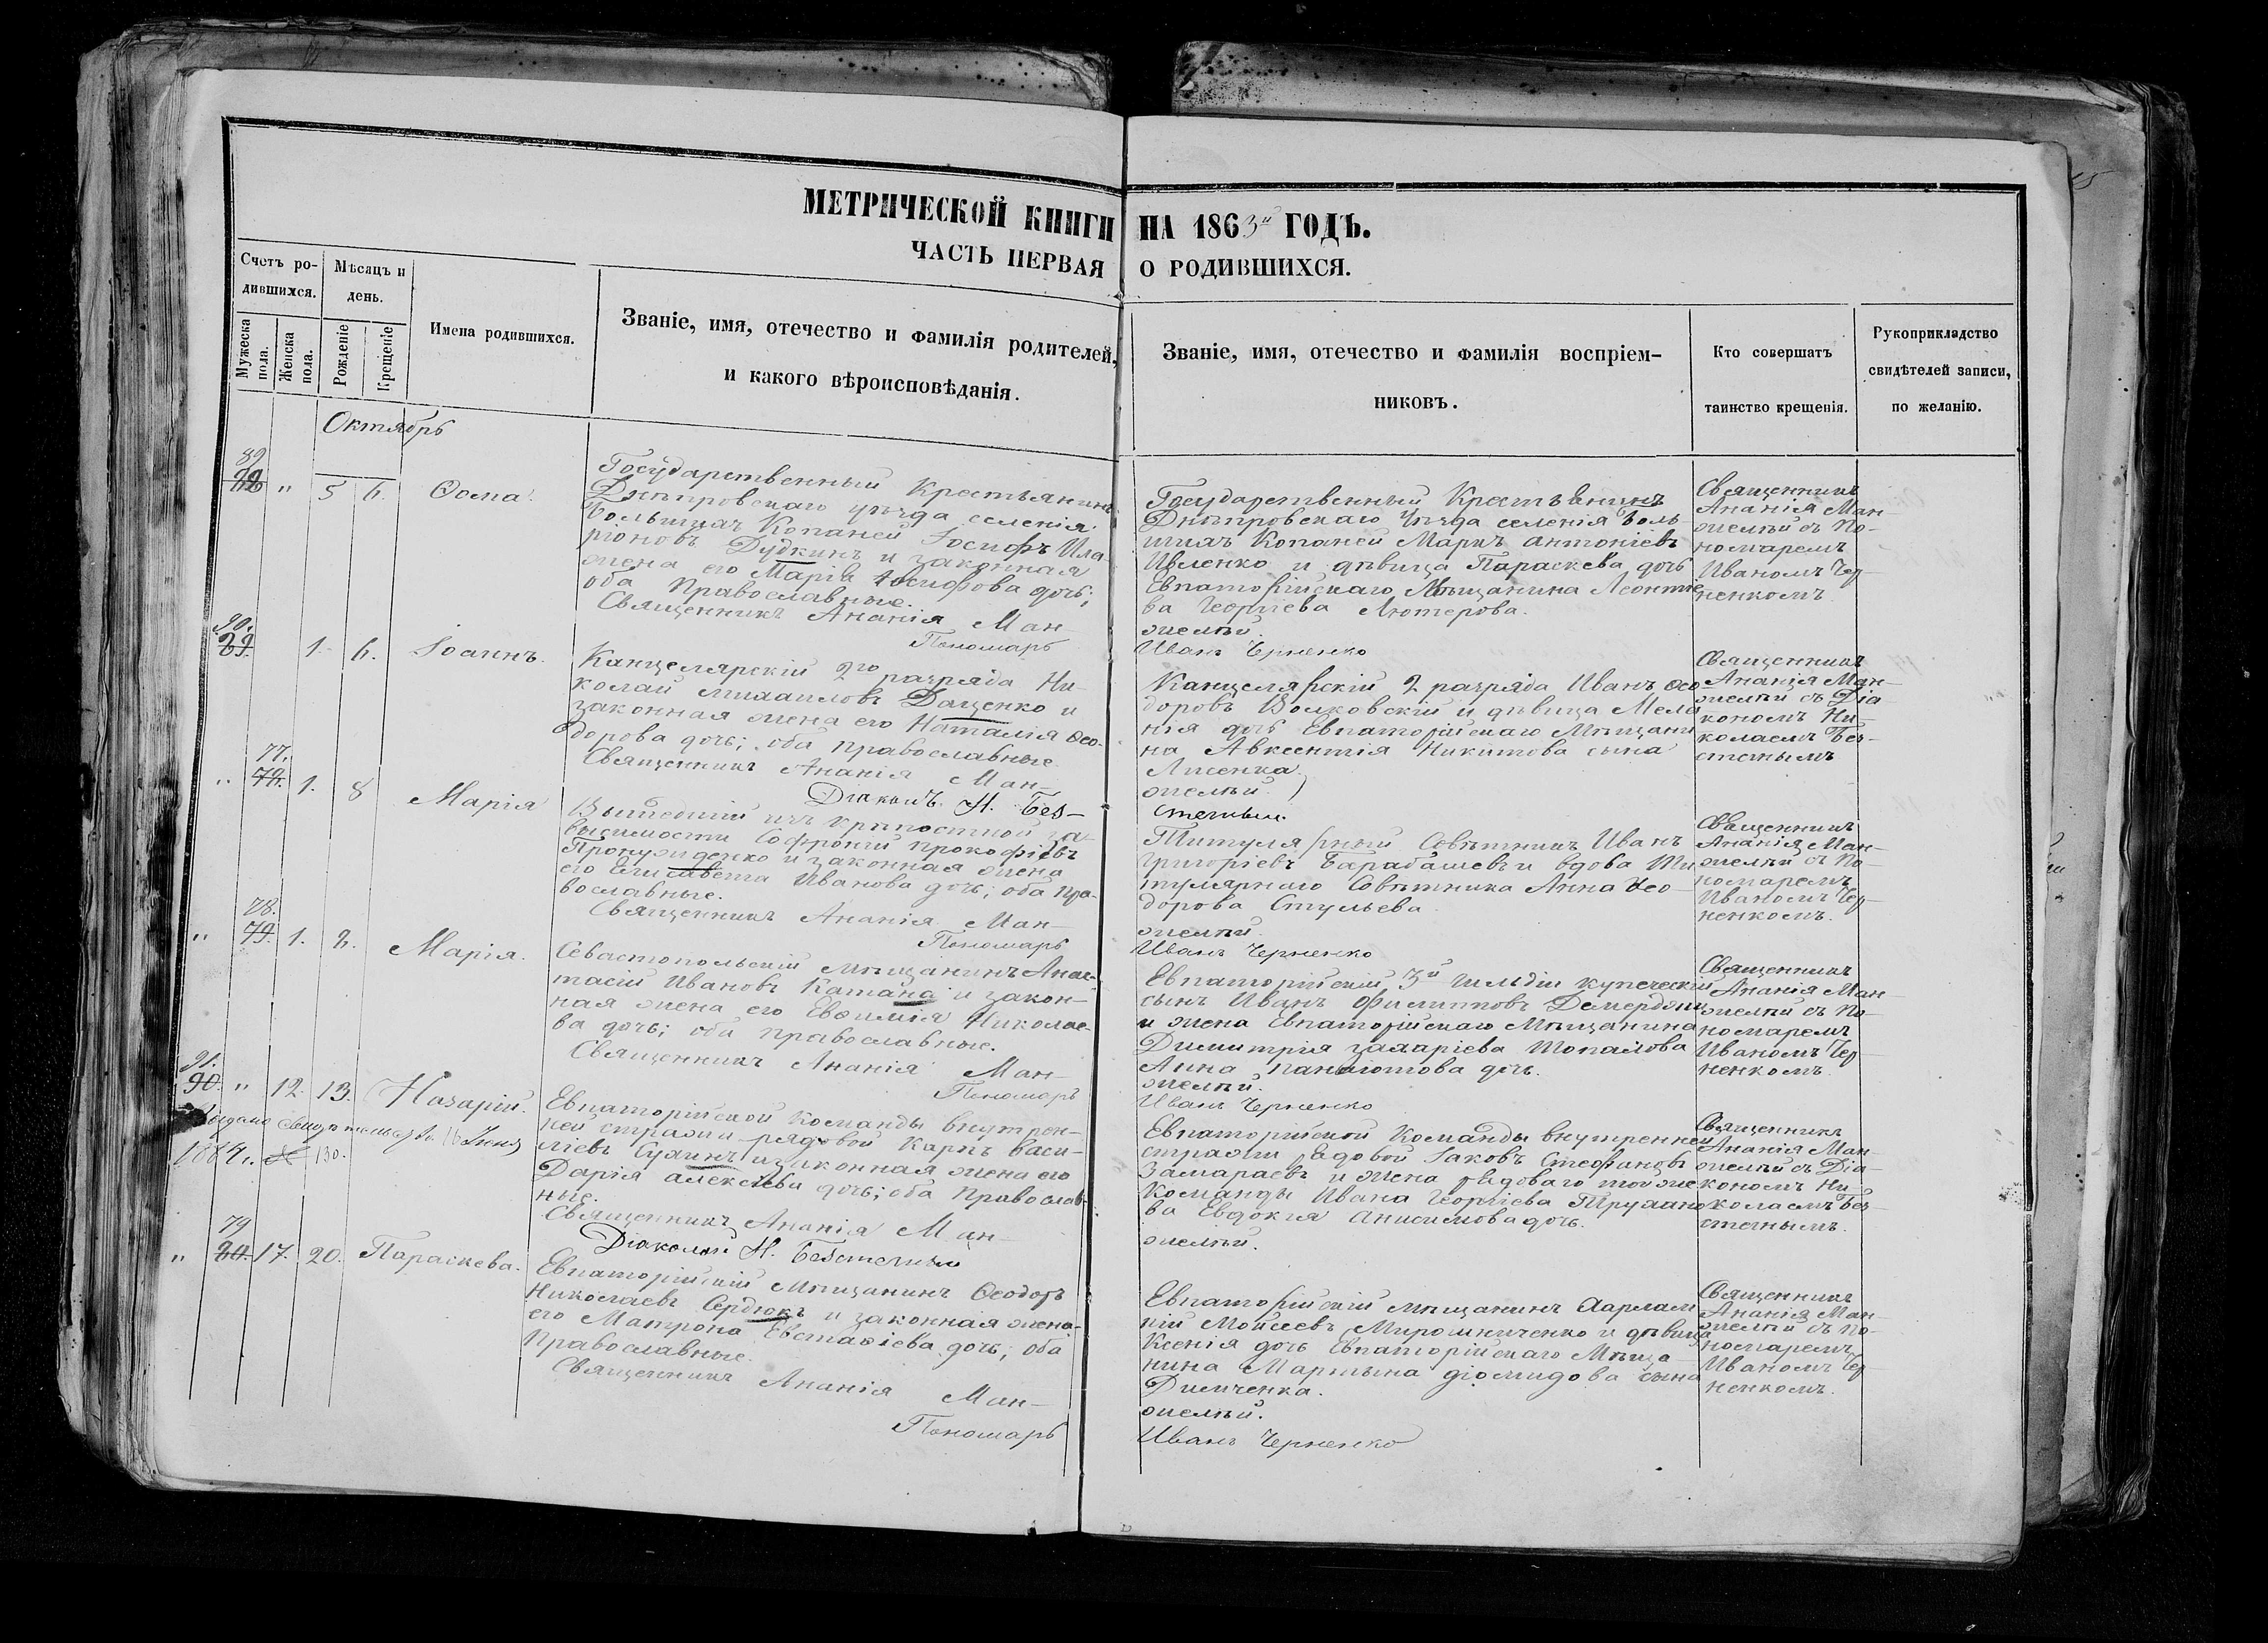 МЕТРИЧЕСКОЙ КНИГИ НА 1863й ГОДЪ.
ЧАСТЬ ПЕРВАЯ О РОДИВШИХСЯ.
Счетъ ро-
дившихся.
Мужеска пола.
Женска пола.
Мѣсяцъ и
день.
Рожденіе
Крещеніе
Имена родившихся.
Званіе, имя, отечество и фамилія родителей,
и какого вѣроисповѣданія.
Званіе, имя, отечество и фамилія воспріем-
никовъ.
Кто совершатъ
таинство крещенія.
Рукоприкладство
свидѣтелей записи,
по желанію.
Октябрь
89
88 " 5 6. Ѳома.
Государственный Крестьянинъ
Днѣпровскаго уѣзда селенія
Большихъ Копаней Іосифъ Ила
ріоновъ Дудкинъ и законная
жена его Марія Іосифова дочь;
оба Православные.
Священникъ Ананія Ман-
Пономарь
Государственный Крестьянинъ
Днѣпровскаго Уѣзда селенія Боль-
шихъ Копаней Маркъ Антоніевъ
Ивленко и дѣвица Параскева дочь
Евпаторійскаго Мѣщанина Леонтіе
ва Георгіева Лютерова.
желѣй.
Иванъ Черненко
Священникъ
Ананія Ман-
желѣй съ По-
номаремъ
Иваномъ Чер-
ненкомъ
90.
89. 1. 6. Іоаннъ.
Канцелярскій 2го разряда Ни-
колай Михаиловъ Даценко и
законная жена его Наталія Ѳео-
дорова дочь; оба православные.
Священникъ Ананія Ман-
Діаконъ Н. Без-
Канцелярскій 2 разряда Иванъ Ѳео-
доровъ Волковскій и дѣвица Мела
нія дочь Евпаторійскаго Мѣщани
на Авксентія Никитова сына
Лисенка.
желѣй.
стечный.
Священникъ
Ананія Ман-
желѣй съ Діа-
кономъ Ни-
колаемъ Без-
стечнымъ
77.
78. 1. 8 Марія
Вышедшій изъ крѣпостной за-
висимости Софроній Прокофіевъ
и законная жена
его Елисавета Иванова дочь; оба Пра-
вославные.
Священникъ Ананія Ман-
Пономарь
Титулярный Совѣтникъ Иванъ
Григоріевъ Барабашевъ и вдова Ти
тулярнаго Совѣтника Анна Ѳео-
дорова Стульева.
желѣй.
Иванъ Черненко
Священникъ
Ананія Ман-
желѣй съ По-
номаремъ
Иваномъ Чер-
ненкомъ.
78.
" 79. 1. 8. Марія.
Севастопольскій мѣщанинъ Анас-
тасій Ивановъ Катана и закон-
ная жена его Евѳимія Николае-
ва дочь; оба православные.
Священникъ Ананія Ман-
Пономарь
Евпаторійскій 3й гильдіи купеческій
сынъ Иванъ Филипповъ
и жена Евпаторійскаго Мѣщанина
Димитрія Захаріева Топалова
Анна Панаіотова дочь.
желѣй.
Иванъ Черненко
Священникъ
Ананія Ман-
желѣй съ По-
номаремъ
Иваномъ Чер
ненкомъ.
91.
90. " 12. 13. Назарій.
Выдано Свидѣтельство 16 Іюня
1884. № 130.
Евпаторійской Команды внутрен-
ней стражи рядовой Карпъ Васи-
ліевъ Сухинъ и законная жена его
Дарія Алексѣева дочь; оба Православ-
ные.
Священникъ Ананія Ман-
Діаконъ Н. Безстечный
Евпаторійской Команды внутренней
стражи рядовой Іаковъ Стефановъ
Замараевъ и жена рядоваго той же
Команды Ивана Георгіева
ва Евдокія Анисимова дочь.
желѣй.
Священникъ
Ананія Ман-
желѣй съ Діа-
кономъ Ни-
колаемъ Без-
стечнымъ.
79
" 80. 17. 20. Параскева.
Евпаторійскій Мѣщанинъ Ѳеодоръ
Николаевъ Сердюкъ и законная жена
его Матрона Евстаѳіева дочь; оба
Православные.
Священникъ Ананія Ман-
Пономарь
Евпаторійскій мѣщанинъ Харлам
пій Моисеевъ Мирошниченко и дѣвица
Ксенія дочь Евпаторійскаго Мѣща-
нина Мартына Діомидова сына
Димченка.
желѣй.
Иванъ Черненко
Священникъ
Ананія Ман-
желѣй съ По-
номаремъ
Иваномъ Чер
ненкомъ.